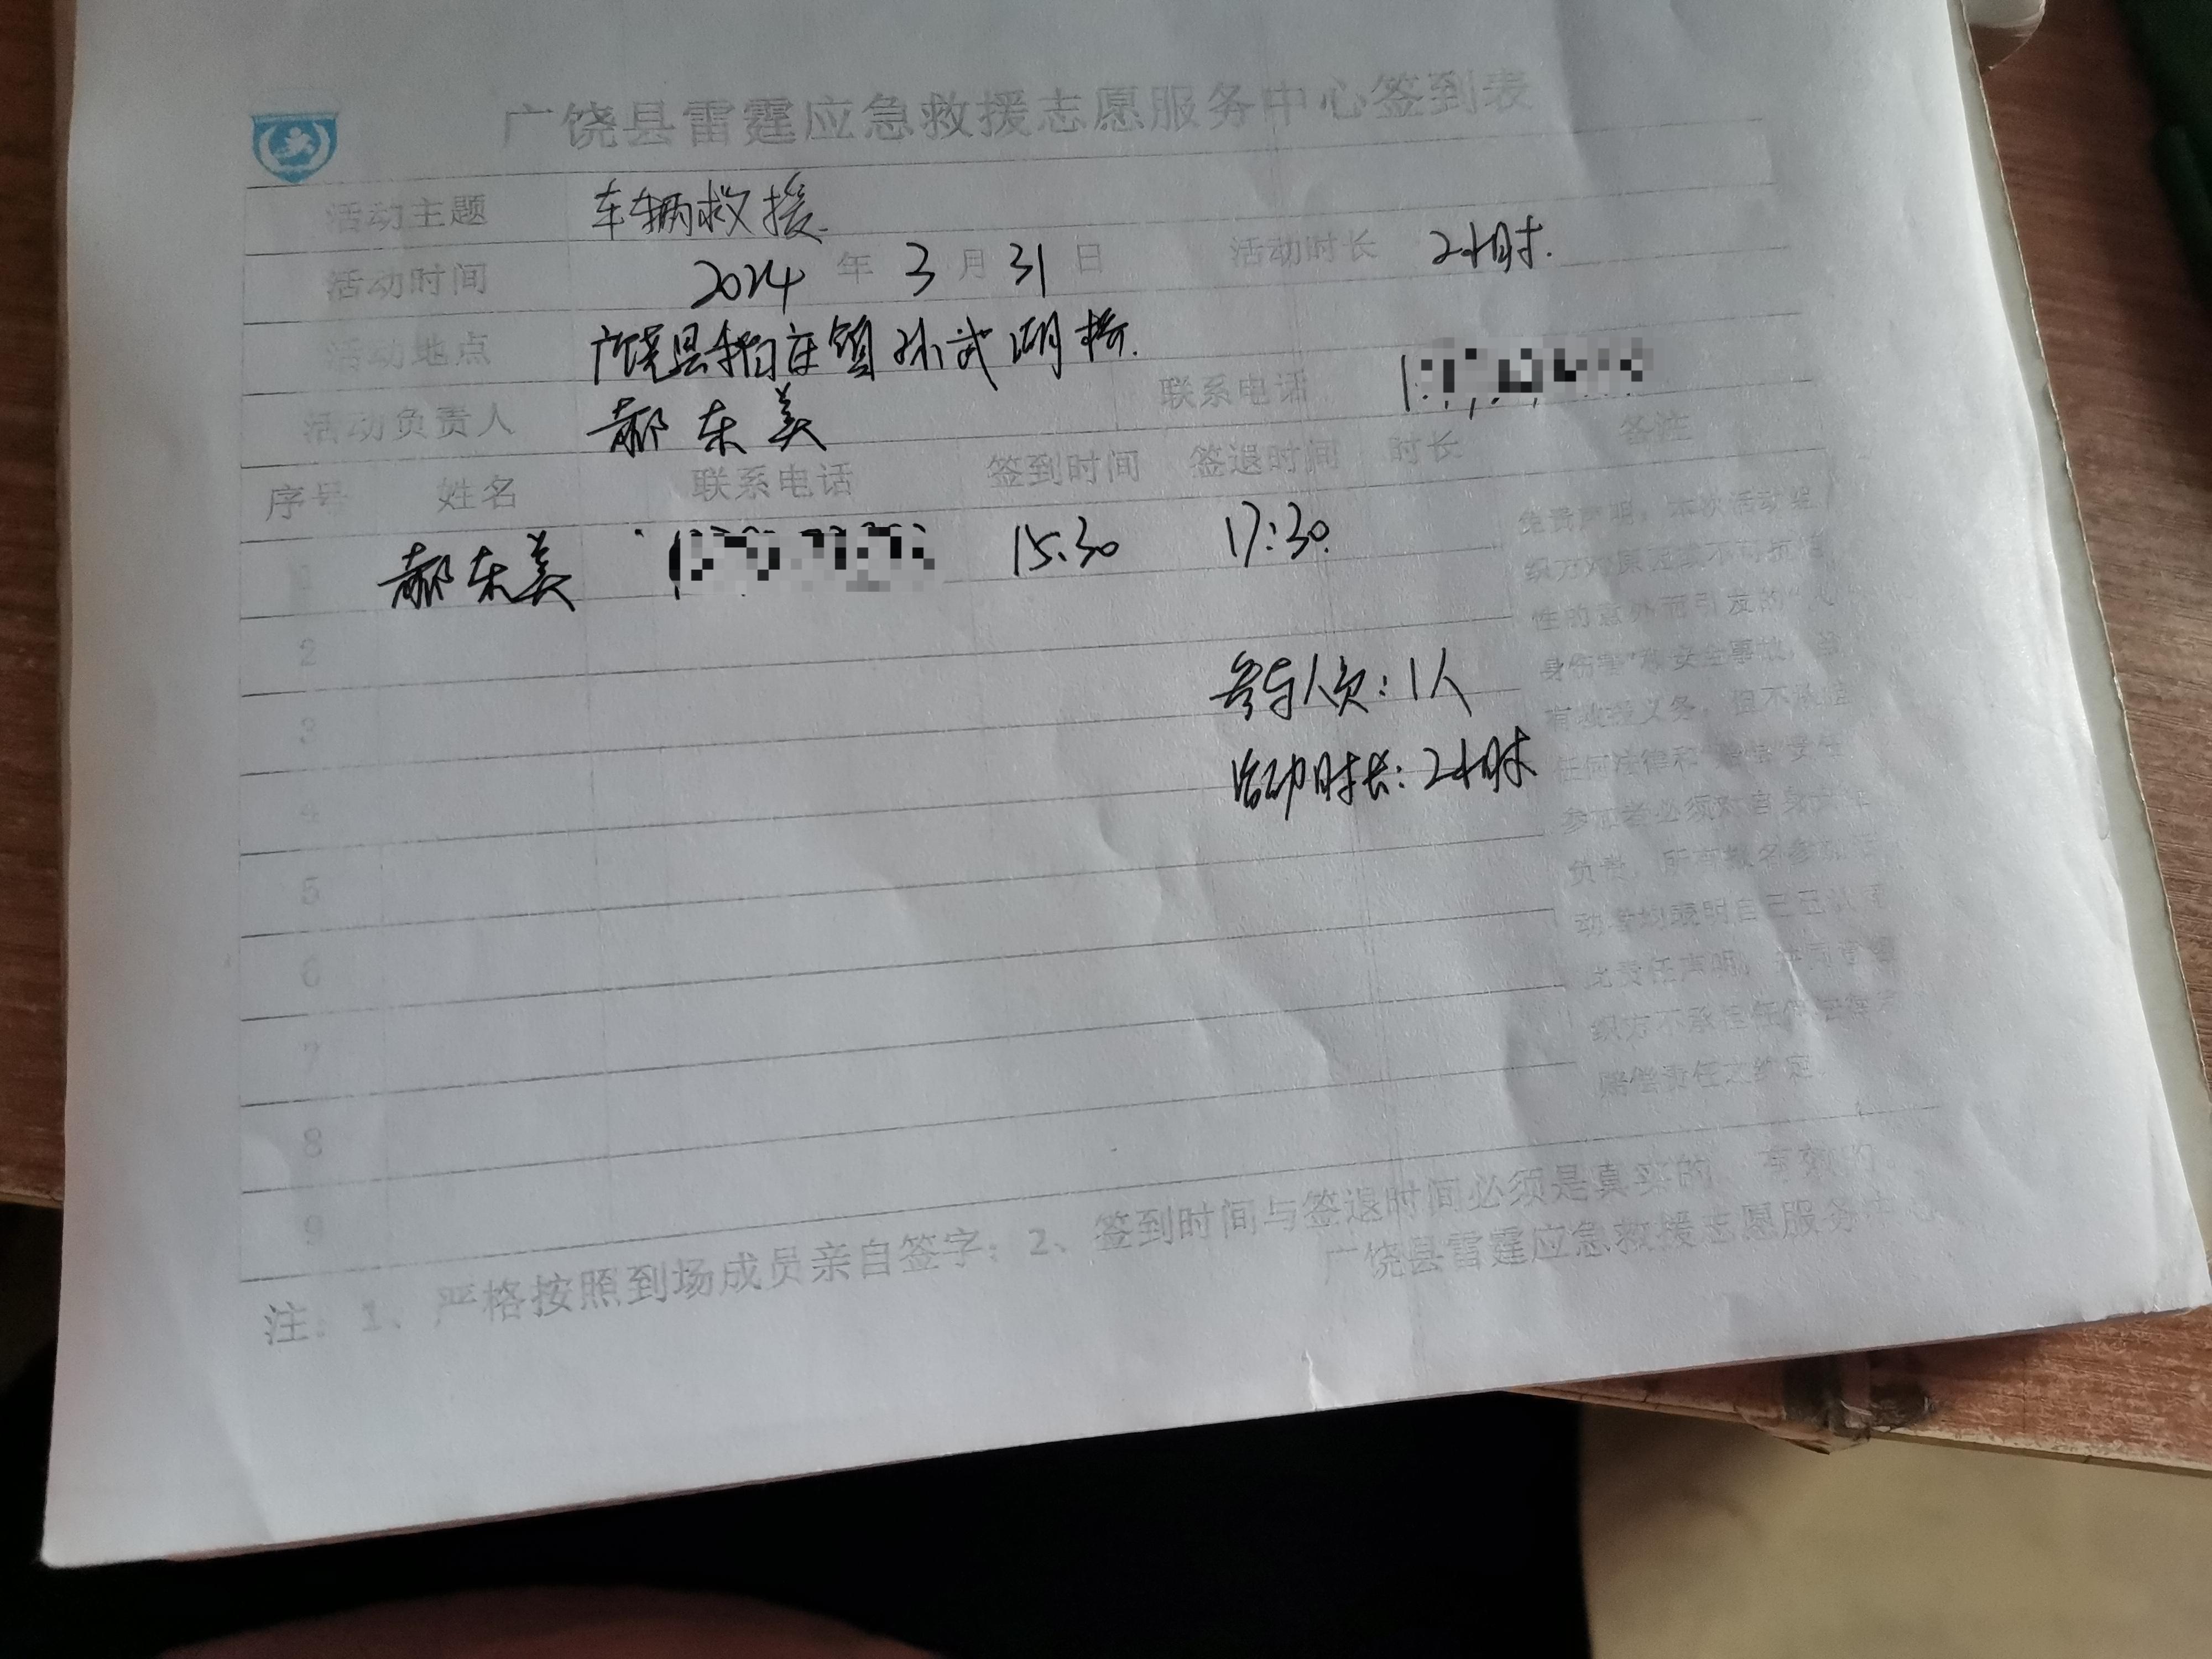 广饶县雷霆应急救援志愿服务中心签到表
活动主题 车辆救援.
活动时间 2024 年 3 月 31 日 活动时长 2小时.
活动地点 广饶县稻庄镇孙武湖桥.
活动负责人 郝东美 联系电话
序号 姓名 联系电话 签到时间 签退时间 时长 备注
1 郝东美 15:30 17:30.
2
3
4
5
6
7
8
9
参与人员:1人
活动时长:2小时
免责声明:本次活动组
织方对
性的意外而引发的
身伤害"和安全事故,
有救援义务,但不承担
任何法律和
参加者必须对自身安全
负责,所有报名参加活
动者均表明自己已认可
此责任声明,并同意组
织方不承担任何法律和
赔偿责任之约定.
注:1、严格按照到场成员亲自签字;2、签到时间与签退时间必须是真实的、有效的.
广饶县雷霆应急救援志愿服务中心